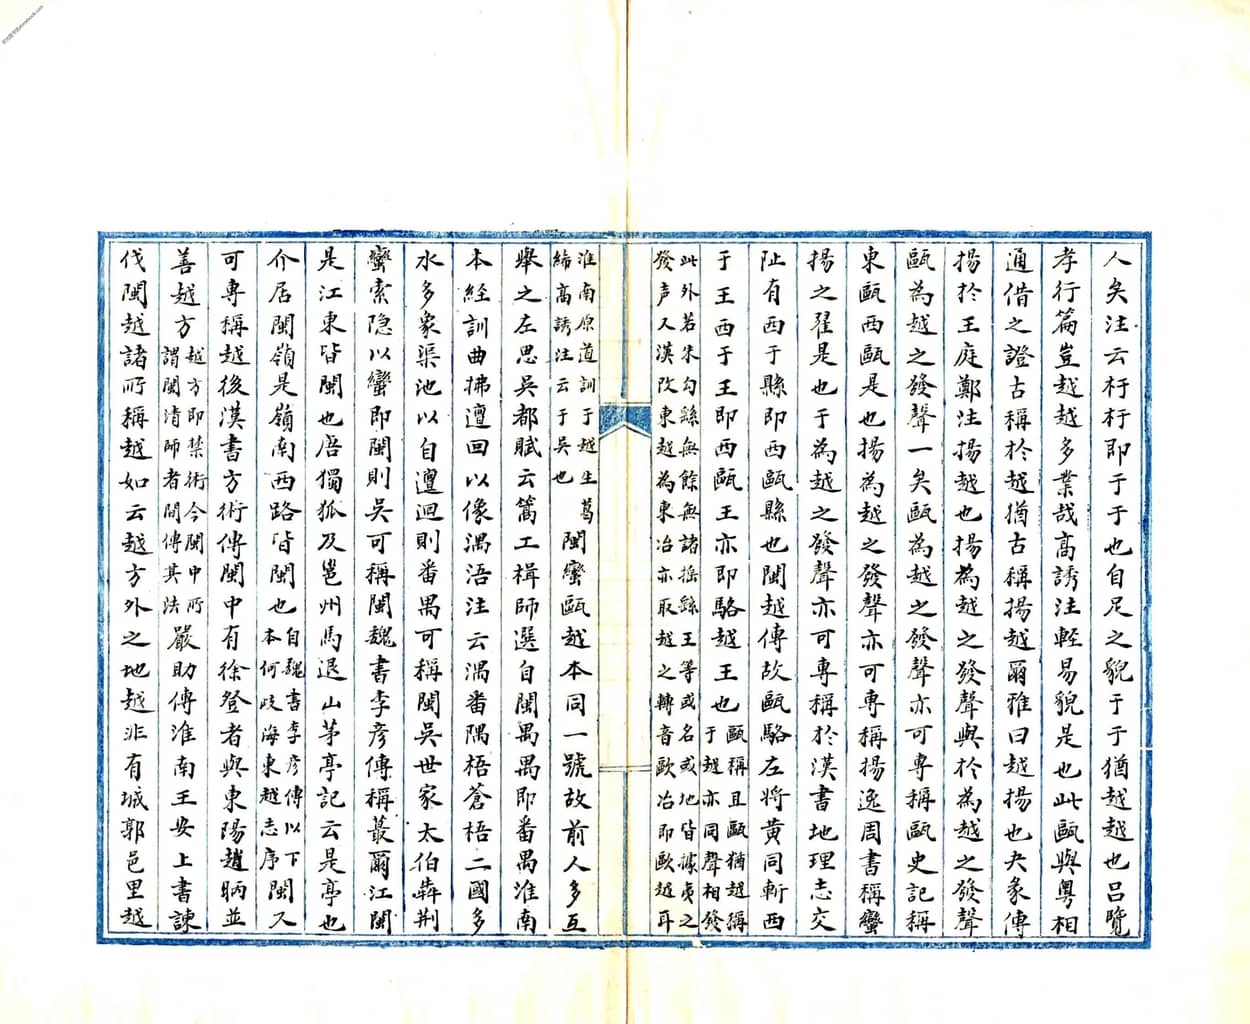 人矣注云杅杅即于于也自足之貌于于猶越越也吕覽
孝行篇豈越越多業哉高誘注輕易貌是也此甌與粤相
通借之證古稱於越猶古稱揚越爾雅曰越揚也夬彖傳
揚於王庭鄭注揚越也揚為越之發聲與於為越之發聲
甌為越之發聲一矣甌為越之發聲亦可專稱甌史記稱
東甌西甌是也揚為越之發聲亦可專稱揚逸周書稱蠻
揚之翟是也于為越之發聲亦可專稱於漢書地理志交
阯有西于縣即西甌縣也閩越傳故甌駱左將黄同斬西
于王西于王即西甌王亦即駱越王也甌稱且甌猶越稱
于越亦同聲相發
此外若朱勾繇無餘無諸摇繇王等或名或地皆據夷之
發声人漢改東越為東冶亦取越之轉音歐冶即歐越耳
淮南原道訓于越生葛
絺高誘注云于吳也
閩蠻甌越本同一號故前人多互
舉之左思吳都賦云篙工楫師選自閩禺禺即番禺淮南
本經訓曲拂邅回以像湡浯注云湡番隅梧蒼梧二國多
水多象渠池以自邅迴則番禺可稱閩吳世家太伯犇荆
蠻索隐以蠻即閩則吳可稱閩魏書李彦傳稱蕞爾江閩
是江東皆閩也唐獨孤及邕州馬退山茅亭記云是亭也
介居閩嶺是嶺南西路皆閩也自魏書李彦傳以下
本何歧海東越志序閩又
可專稱越後漢書方術傳閩中有徐登者與東陽趙昞並
善越方越方即禁術今閩中所
謂閩清師者間傳其法嚴助傳淮南王安上書諫
伐閩越諸所稱越如云越方外之地越非有城郭邑里越